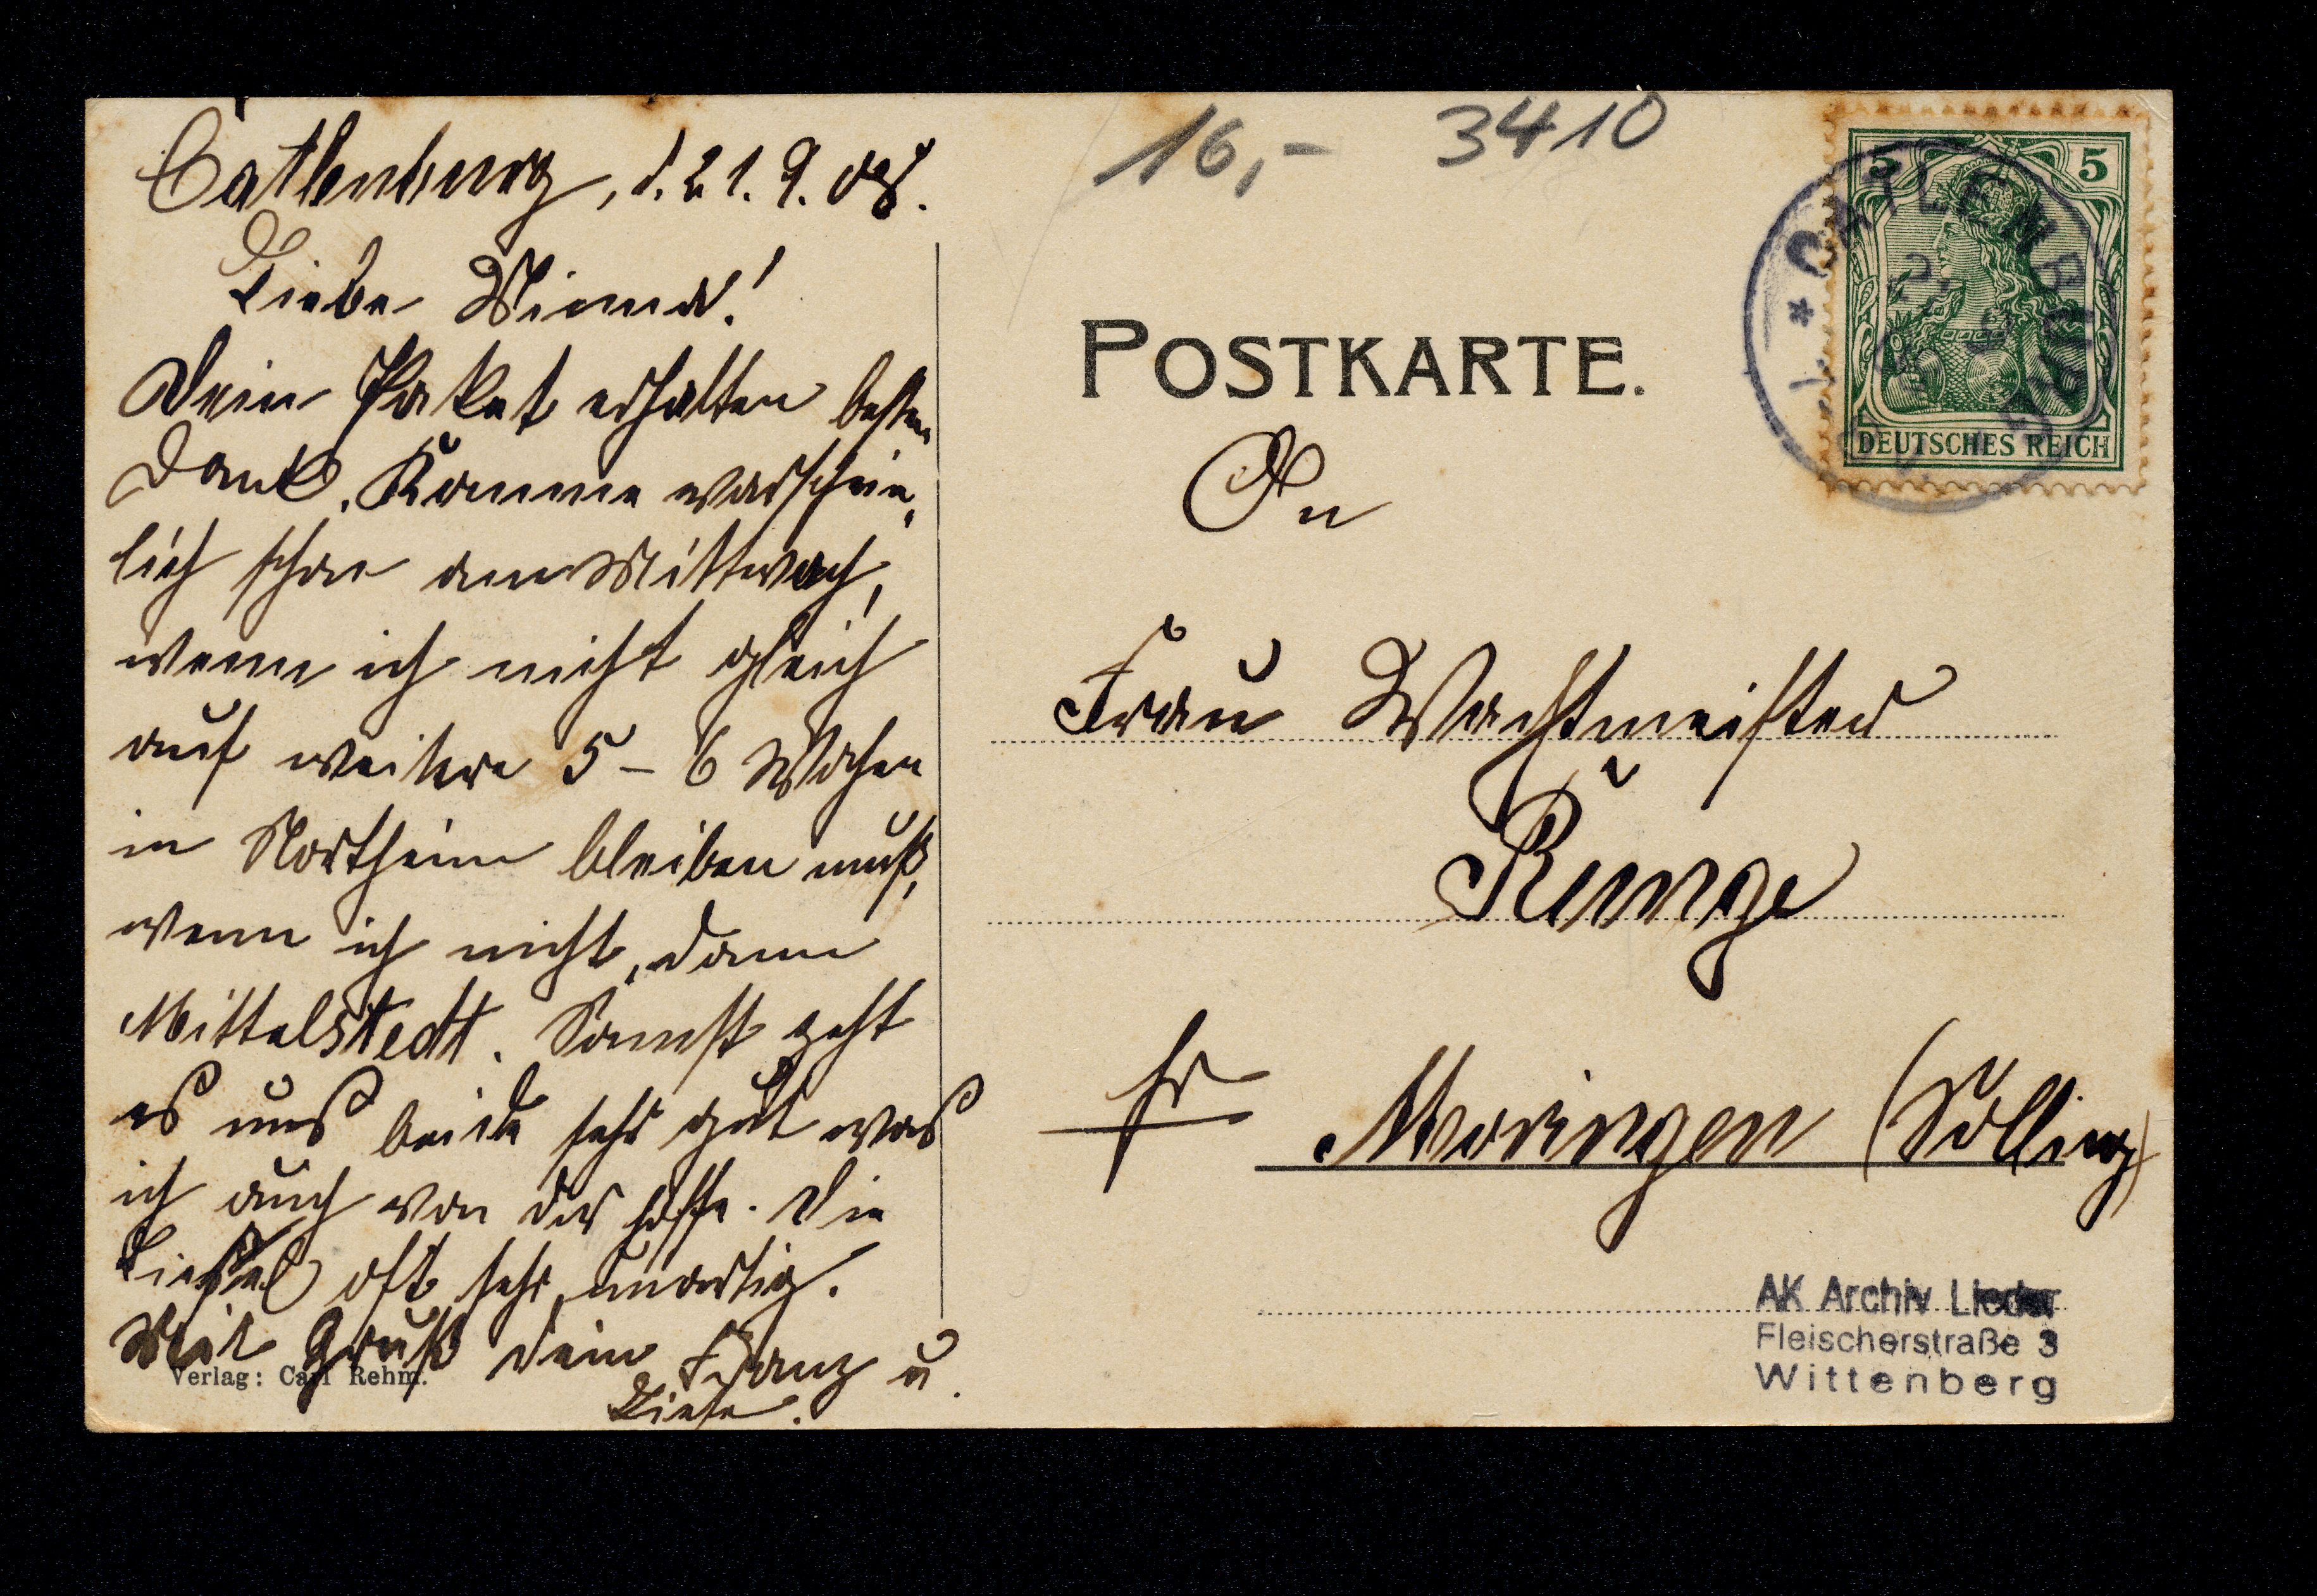 Catlenburg, d. 21. 9. 08.
Liebe Minna!
Dein Paket erhalten besten
Dank. Komme warschein-
lich schon am Mittwoch,
wenn ich nicht gleich
auf weitere 5 – 6 Wochen
in Northeim bleiben muß,
wenn ich nicht, dann
Mittelstedt. Sonnst geht
es uns beide sehr gut was
ich auch von dir hoffe. Die
Liesel oft sehr unartig.
Mit Gruß dein Franz u.
Liese.
Verlag: Carl Rehm.
16,- 3410
5 5
DEUTSCHES REICH
* CATLENBURG
POSTKARTE.
An
Frau Wachtmeister
Runge
Moringen (Solling)
AK Archiv Lieder
Fleischerstraße 3
Wittenberg